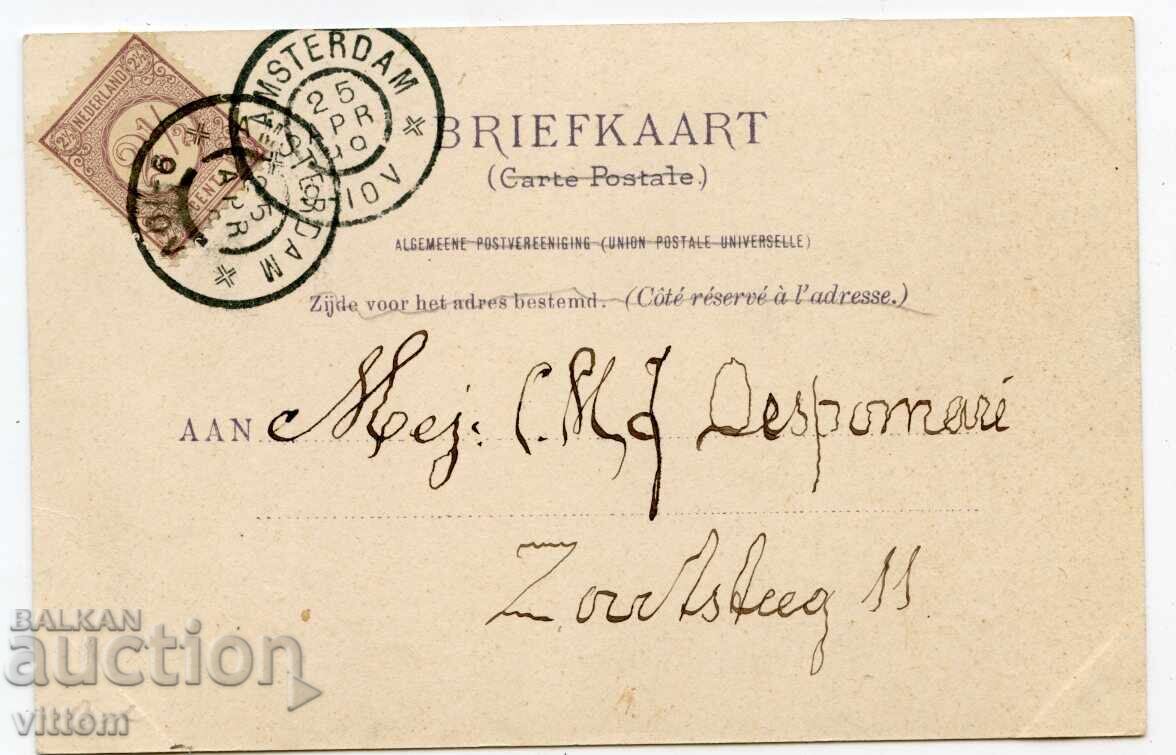 NEDERLAND
2½
2½
AMSTERDAM
25
APR
10V
AMSTERDAM
25
APR
BRIEFKAART
(Carte Postale.)
ALGEMEENE POSTVEREENIGING (UNION POSTALE UNIVERSELLE)
Zijde voor het adres bestemd. (Côté réservé à l'adresse.)
AAN Mej. C. M. J Despomaré
11
BALKAN
auction
vittom